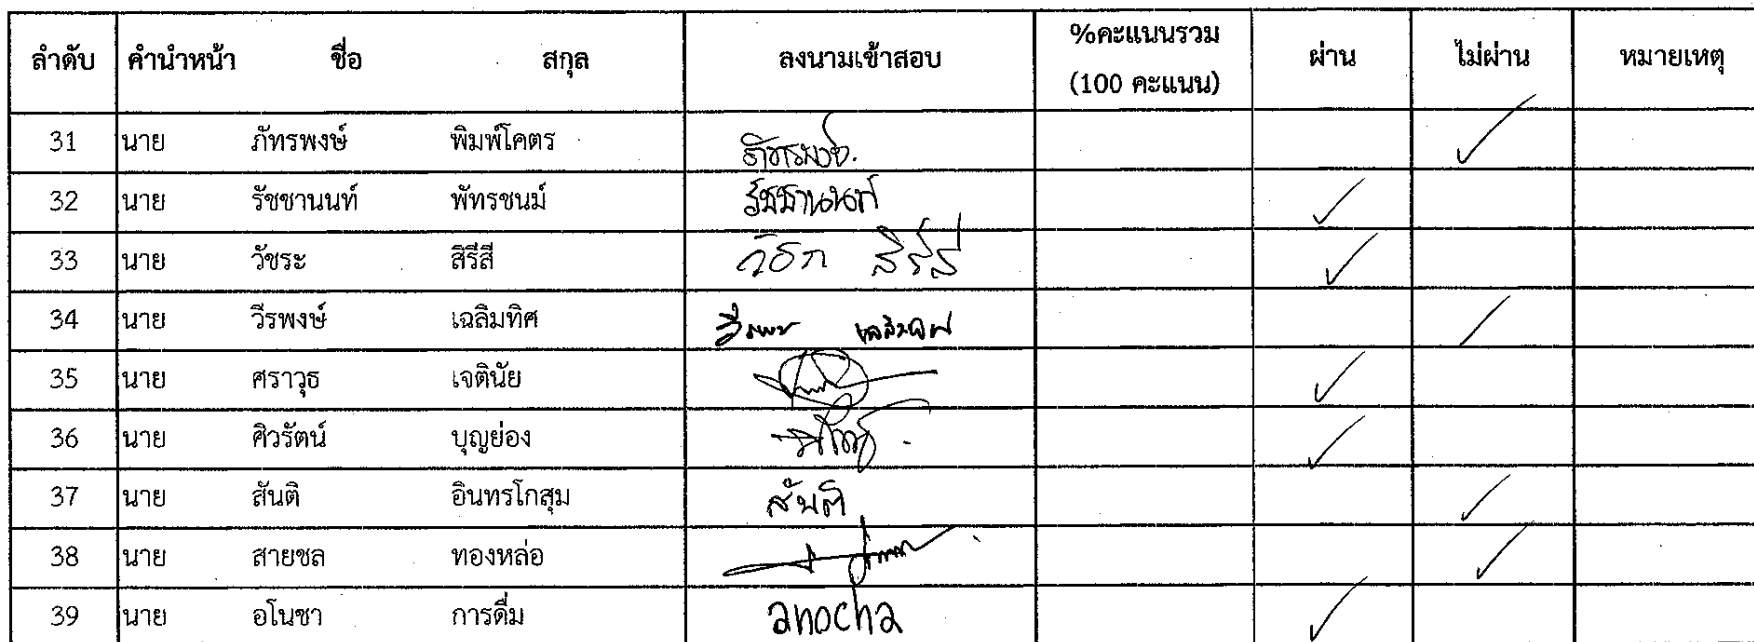 ลำดับ คำนำหน้า ชื่อ สกุล ลงนามเข้าสอบ %คะแนนรวม (100 คะแนน) ผ่าน ไม่ผ่าน หมายเหตุ
31 นาย ภัทรพงษ์ พิมพ์โคตร ภัทรพงษ์ ✓
32 นาย รัชชานนท์ พัทรชนม์ รัชชานนท์ ✓
33 นาย วัชระ สิรีสี สิรีสี ✓
34 นาย วีรพงษ์ เฉลิมทิศ ✓
35 นาย ศราวุธ เจตินัย ✓
36 นาย ศิวรัตน์ บุญย่อง ✓
37 นาย สันติ อินทรโกสุม สันติ ✓
38 นาย สายชล ทองหล่อ ✓
39 นาย อโนชา การดื่ม anocha ✓